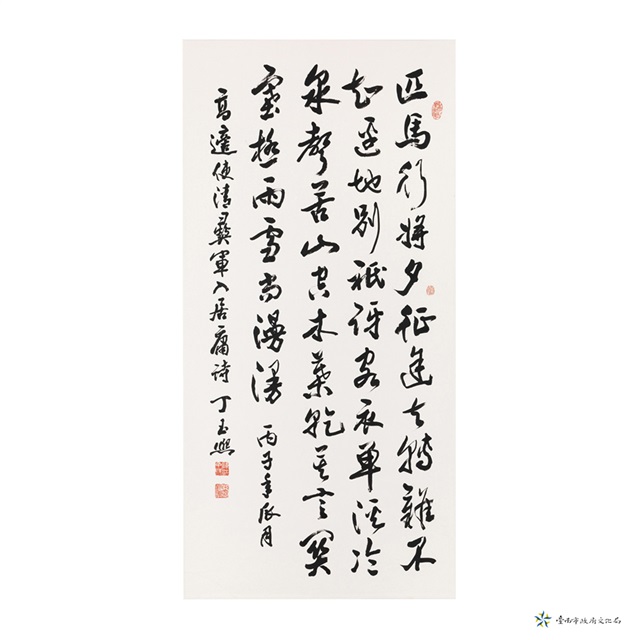 匹馬行將夕征途去轉難不
知邊地別祇訝客衣單溪冷
泉聲苦山空木葉乾莫言關
塞極雨雪尚漫漫 丙子年辰月
高適使清彝軍入居庸詩 丁玉熙
臺南市政府文化局